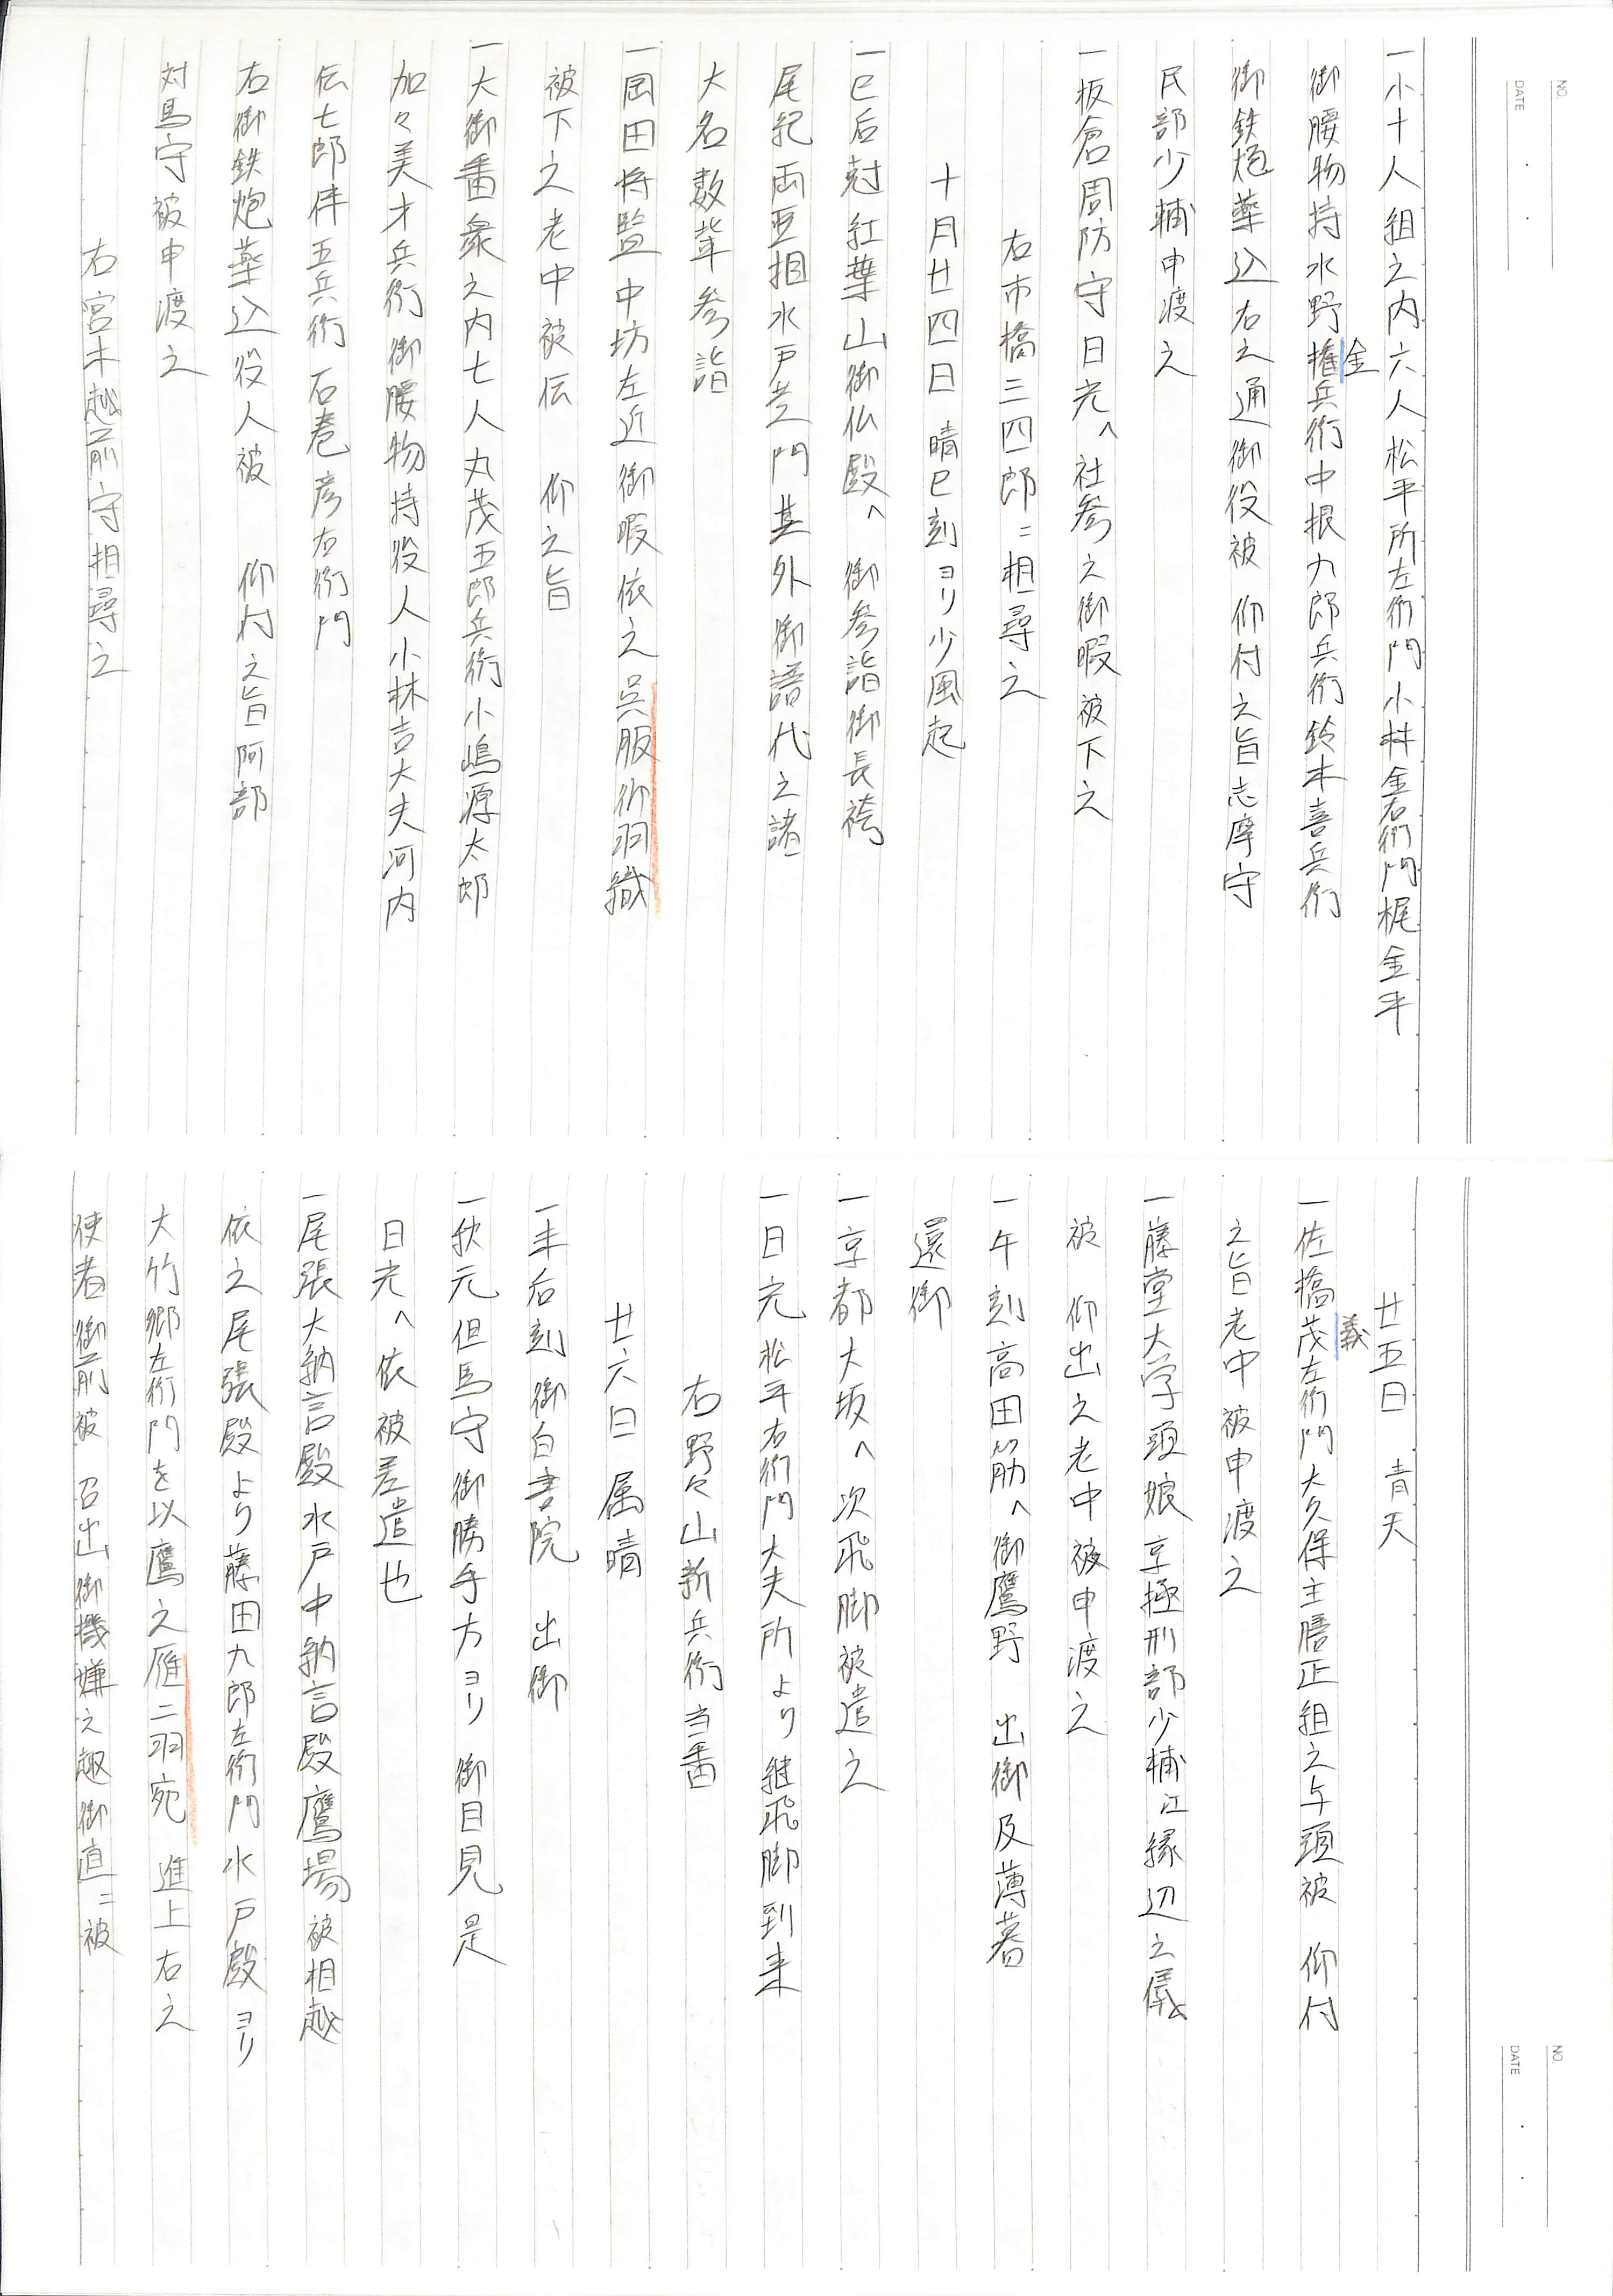 NO.
DATE
一小十人組之内六人松平所左衛門小林金右衛門梶金平
御腰物持水野権兵衛中根九郎兵衛鈴木喜兵衛
金
御鉄炮薬込右之通御役被 仰付之旨志摩守
民部少輔申渡之
一板倉周防守日光へ社参之御暇被下之
右市橋三四郎ニ相尋之
十月廿四日 晴巳刻ヨリ少風起
一巳后尅紅葉山御仏殿へ 御参詣御長袴
尾紀両亜相水戸黄門其外御譜代之諸
大名数輩参詣
一岡田将監中坊左近御暇依之呉服御羽織
被下之老中被伝 仰之旨
一大御番衆之内七人丸茂五郎兵衛小嶋源太郎
加々美才兵衛御腰物持役人小林吉大夫河内
伝七郎伴五兵衛石巻彦右衛門
右御鉄炮薬込役人被 仰付之旨阿部
対馬守被申渡之
右宮木越前守相尋之
NO.
DATE
廿五日 青天
一佐橋茂左衛門大久保主膳正組之与頭被 仰付
義
之旨老中被申渡之
一藤堂大学頭娘京極刑部少輔江縁辺之儀
被 仰出之老中被申渡之
一午刻高田筋へ御鷹野 出御及薄暮
還御
一京都大坂へ次飛脚被遣之
一日光松平右衛門大夫所より継飛脚到来
右野々山新兵衛当番
廿六日 属晴
一未后刻御白書院 出御
一秋元但馬守御勝手方ヨリ 御目見 是
日光へ依被差遣也
一尾張大納言殿水戸中納言殿鷹場被相越
依之尾張殿より藤田九郎左衛門水戸殿ヨリ
大竹郷左衛門を以鷹之雁二羽宛 進上右之
使者御前被 召出御機嫌之趣御直ニ被